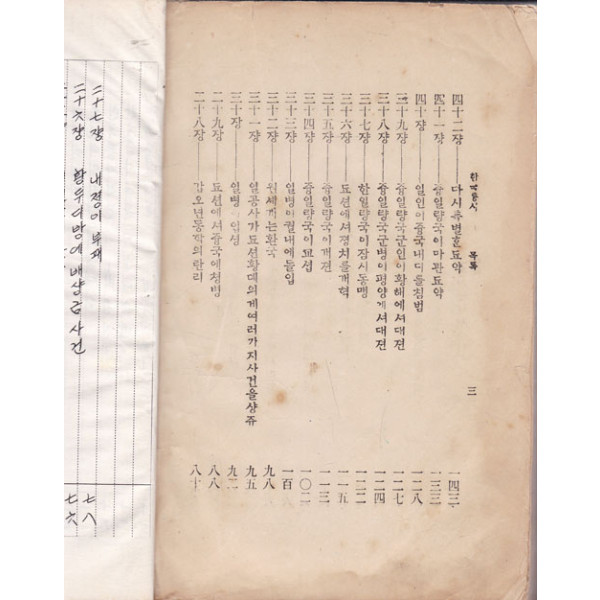 二十六장 황두여방에 배상급사건 七六
二十七장 내정이 부패 七八
二十八장 갑오년동학의란리 八十
二十九장 됴션에셔즁국에쳥병 八八
三十장 일병이입셩 九二
三十一쟝 일공사가됴션황뎨의게여러가지사건을샹쥬 九五
三十二쟝 원세개는환국 九八
三十三쟝 일병이궐내에돌입 一百
三十四쟝 즁일량국이교섭 一〇二
三十五쟝 즁일량국이개젼 一一三
三十六쟝 됴션에셔졍치를개혁 一一五
三十七쟝 한일량국이잠시동맹 一二二
三十八쟝 즁일량국군병이평양게셔대젼 一二四
三十九쟝 즁일량국군인이황해에셔대젼 一二七
四十쟝 일인이즁국내디를침범 一二八
四十一쟝 즁일량국이마관됴약 一三三
四十二쟝 다시츄별한됴약 一四三
한국통사 목록 三